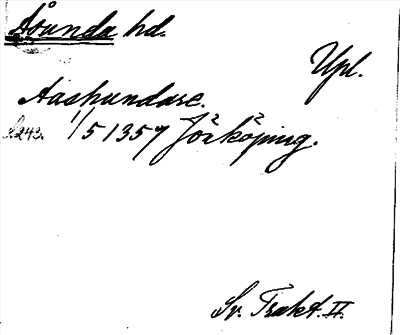 Åsunda hd.
Upl.
Aashundare.
1/5 1357 Jörköping.
Sv. Trakt. II.